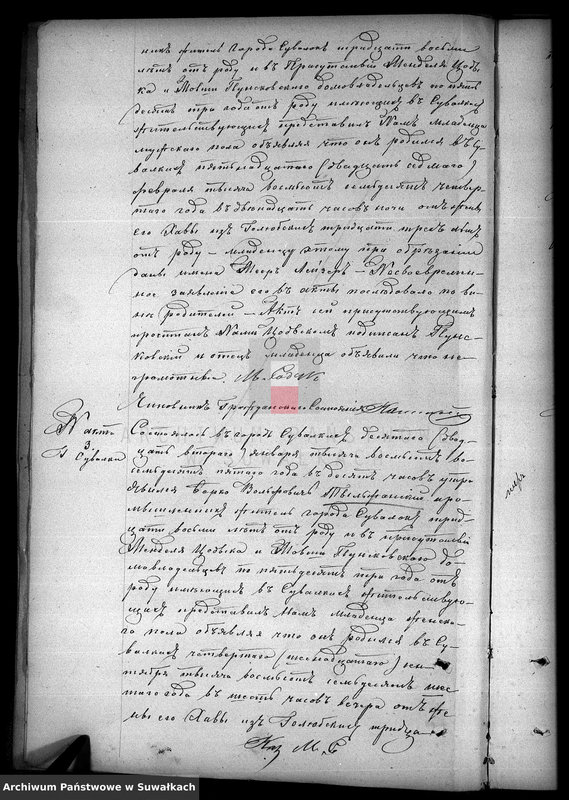 никъ житель города Сувалокъ тридцати восьми
лѣтъ отъ роду и въ присутствіи Менделя Цодь-
ка и Товіи Пунсковскаго домовладельцевъ по пять
десять три года отъ роду имѣющихъ въ Сувалкахъ
жительствующихъ представилъ Намъ младенца
мужскаго пола объявляя что онъ родился въ Су-
валкахъ пятьнадцатаго (двадцать седмаго)
февраля тысяча восемьсотъ семьдесятъ четвер-
таго года въ двѣнадцать часовъ ночи отъ жены
его Хавы изъ Голюбскихъ тридцати трехъ лѣтъ
отъ роду — младенцу этому при обрѣзаніи
даны имена Лейзоръ — Несвоевремен-
ное заявленіе его въ акты послѣдовало по ви-
нѣ родителей — Актъ сей присутствующимъ
прочтанъ Нами Цодькомъ подписанъ Пунс-
ковскій и отецъ младенца объявили что не-
грамотные. М. Цодекъ
Чиновникъ Гражданскаго Состоянія
N акта
3
Сувалки
Состоялось въ городѣ Сувалкахъ десятаго (двад-
цать втораго) января тысяча восемьсотъ во-
семьдесятъ пятаго года въ десять часовъ утра
явился Берко Вольфовичъ про-
мышленникъ житель города Сувалокъ трид-
цати восьми лѣтъ отъ роду и въ присутствіи
Менделя Цодька и Товіи Пунсковскаго до-
мовладельцевъ по пятьдесятъ три года отъ
роду имѣющихъ въ Сувалкахъ жительствую-
щихъ представилъ Намъ младенца женска-
го пола объявляя что онъ родился въ Су-
валкахъ четвертаго (шеснадцатаго) ок-
тября тысяча восемьсотъ семьдесятъ шес-
таго года въ шесть часовъ вечера отъ же-
ны его Хавы изъ Голюбскихъ тридца-
М. С
Archiwum Państwowe w Suwałkach